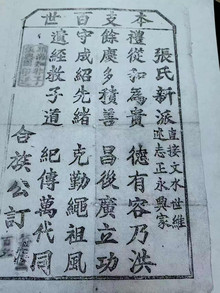 本支百世
張氏新派
直接文水世維
述志正永興家
禮從和為貴 德有容乃洪
餘慶多積善 昌後廣立功
守成紹先緒 克勤繩祖風
遺經教子道 紀傳萬代同
合族公訂